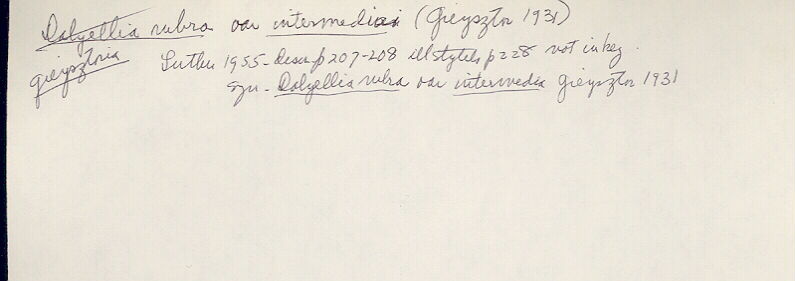 Dalyellia rubra var intermedia (Gieysztor 1931)
gieysztoria Luther 1955 - desc p 207-208 ill stylets p 228 not in key.
syn - Dalyellia rubra var intermedia gieysztor 1931